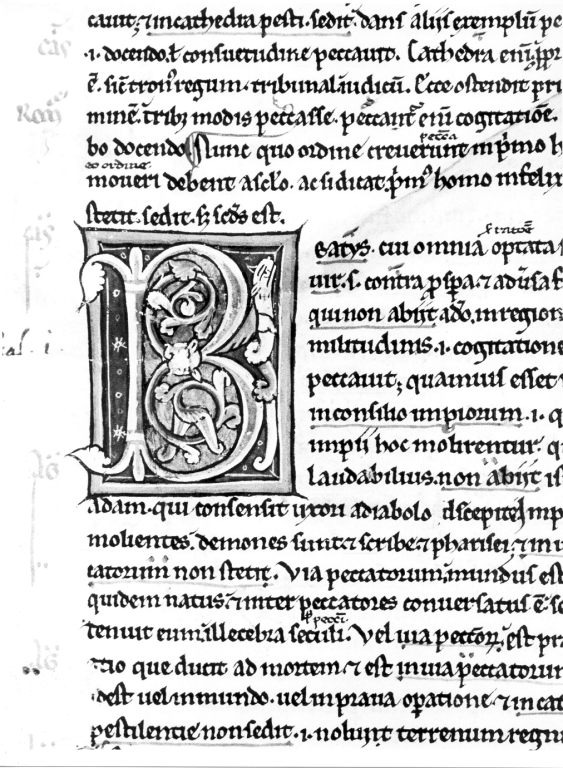 cauit; ⁊ in cathedra pesti. sedit. dans alijs exemplū pe
.i. docendo. ł consuetudine peccauit. Cathedra eni ꝓpr
ē. sic̄ tron⁹ regum. tribunal iudicū. Ecce ostendit pri
minē. tribꝫ modis peccasse. peccant̄ eni cogitatiōe.
pecca
bo docendo Nunc quo ordine creuerunt in p̄mo h
eo ordine
moueri debent a sclo. ac si dicat. p̄m⁹ homo infelix
stetit. sedit. sꝫ sc̄ds est.
B eatꝰ. cui omnia optata s
uir. s. contra ꝓspa. ⁊ adūsa
qui non abijt a do. in region
militudinis. .i. cogitatione
peccauit; quamuis esset
in consilio impiorum. .i. q
impij hoc molirentur. q
laudabilius. non abijt
Adam. qui consensit uxori a diabolo
molientes. demones sunt. ⁊ scribe. ⁊ pharisei. ⁊ in u
catorum non stetit. Via peccatorum. mundus est
quidem natus. ⁊ inter peccatores conuersatus ē. s
tenuit eum illecebra seculi. Vel uia pecc̄oꝝ. est pra
tio que ducit ad mortem. ⁊ est in uia peccatorum
dest uel in mundo. uel in praua oꝑatione. ⁊ in cat
pestilentie non sedit. .i. noluit terrenum regnu